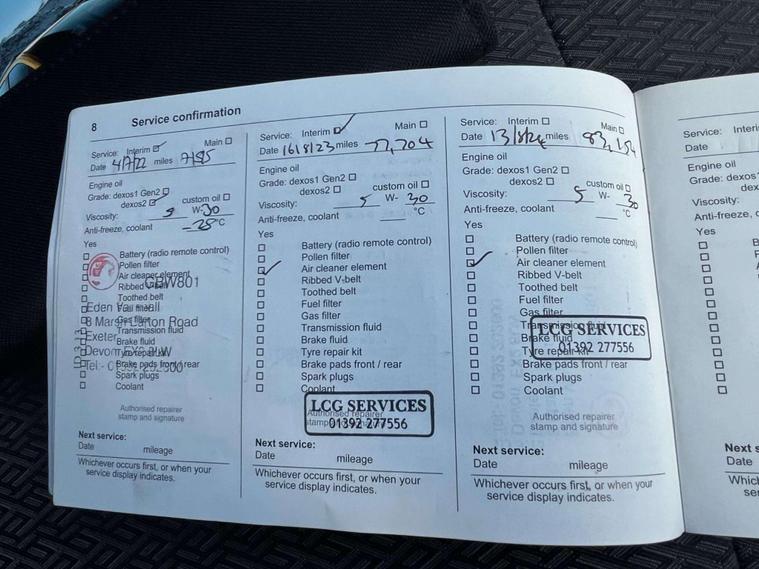 8 Service confirmation
Service: Interim Main
Date 4/7/22 miles
Engine oil
Grade: dexos1 Gen2
dexos2 custom oil
Viscosity: 5 W-30
Anti-freeze, coolant -25°C
Yes
Battery (radio remote control)
Pollen filter
Air cleaner element
Ribbed V-belt
Toothed belt
Fuel filter
Gas filter
Transmission fluid
Brake fluid
Tyre repair kit
Brake pads front / rear
Spark plugs
Coolant
Eden Vauxhall
8 Marsh Barton Road
Exeter
Devon
Tel:-
Authorised repairer
stamp and signature
Next service:
Date mileage
Whichever occurs first, or when your
service display indicates.
Service: Interim Main
Date 16/8/23 miles 77,704
Engine oil
Grade: dexos1 Gen2
dexos2 custom oil
Viscosity: 5 W- 30
Anti-freeze, coolant °C
Yes
Battery (radio remote control)
Pollen filter
Air cleaner element
Ribbed V-belt
Toothed belt
Fuel filter
Gas filter
Transmission fluid
Brake fluid
Tyre repair kit
Brake pads front / rear
Spark plugs
Coolant
LCG SERVICES
01392 277556
Authorised repairer
Next service:
Date mileage
Whichever occurs first, or when your
service display indicates.
Service: Interim Main
Date 13/8/24 miles 83,154
Engine oil
Grade: dexos1 Gen2
dexos2 custom oil
Viscosity: 5 W- 30
Anti-freeze, coolant °C
Yes
Battery (radio remote control)
Pollen filter
Air cleaner element
Ribbed V-belt
Toothed belt
Fuel filter
Gas filter
Transmission fluid
Brake fluid
Tyre repair kit
Brake pads front / rear
Spark plugs
Coolant
LCG SERVICES
01392 277556
Authorised repairer
stamp and signature
Next service:
Date mileage
Whichever occurs first, or when your
service display indicates.
Service: Interi
Date
Engine oil
Grade: dexos
Viscosity:
Anti-freeze, c
Yes
Next s
Date
Which
se